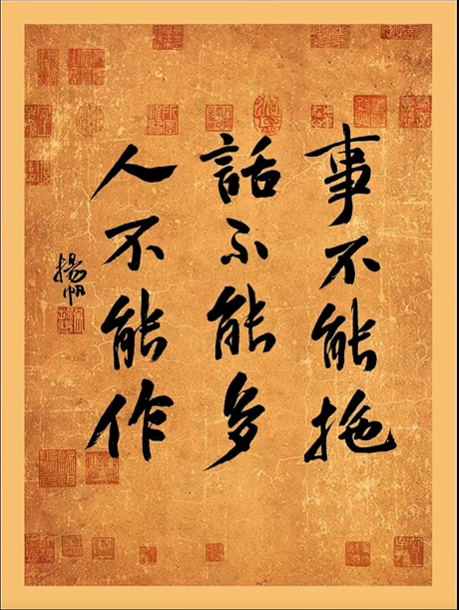 事不能拖
話不能多
人不能作
揚帆